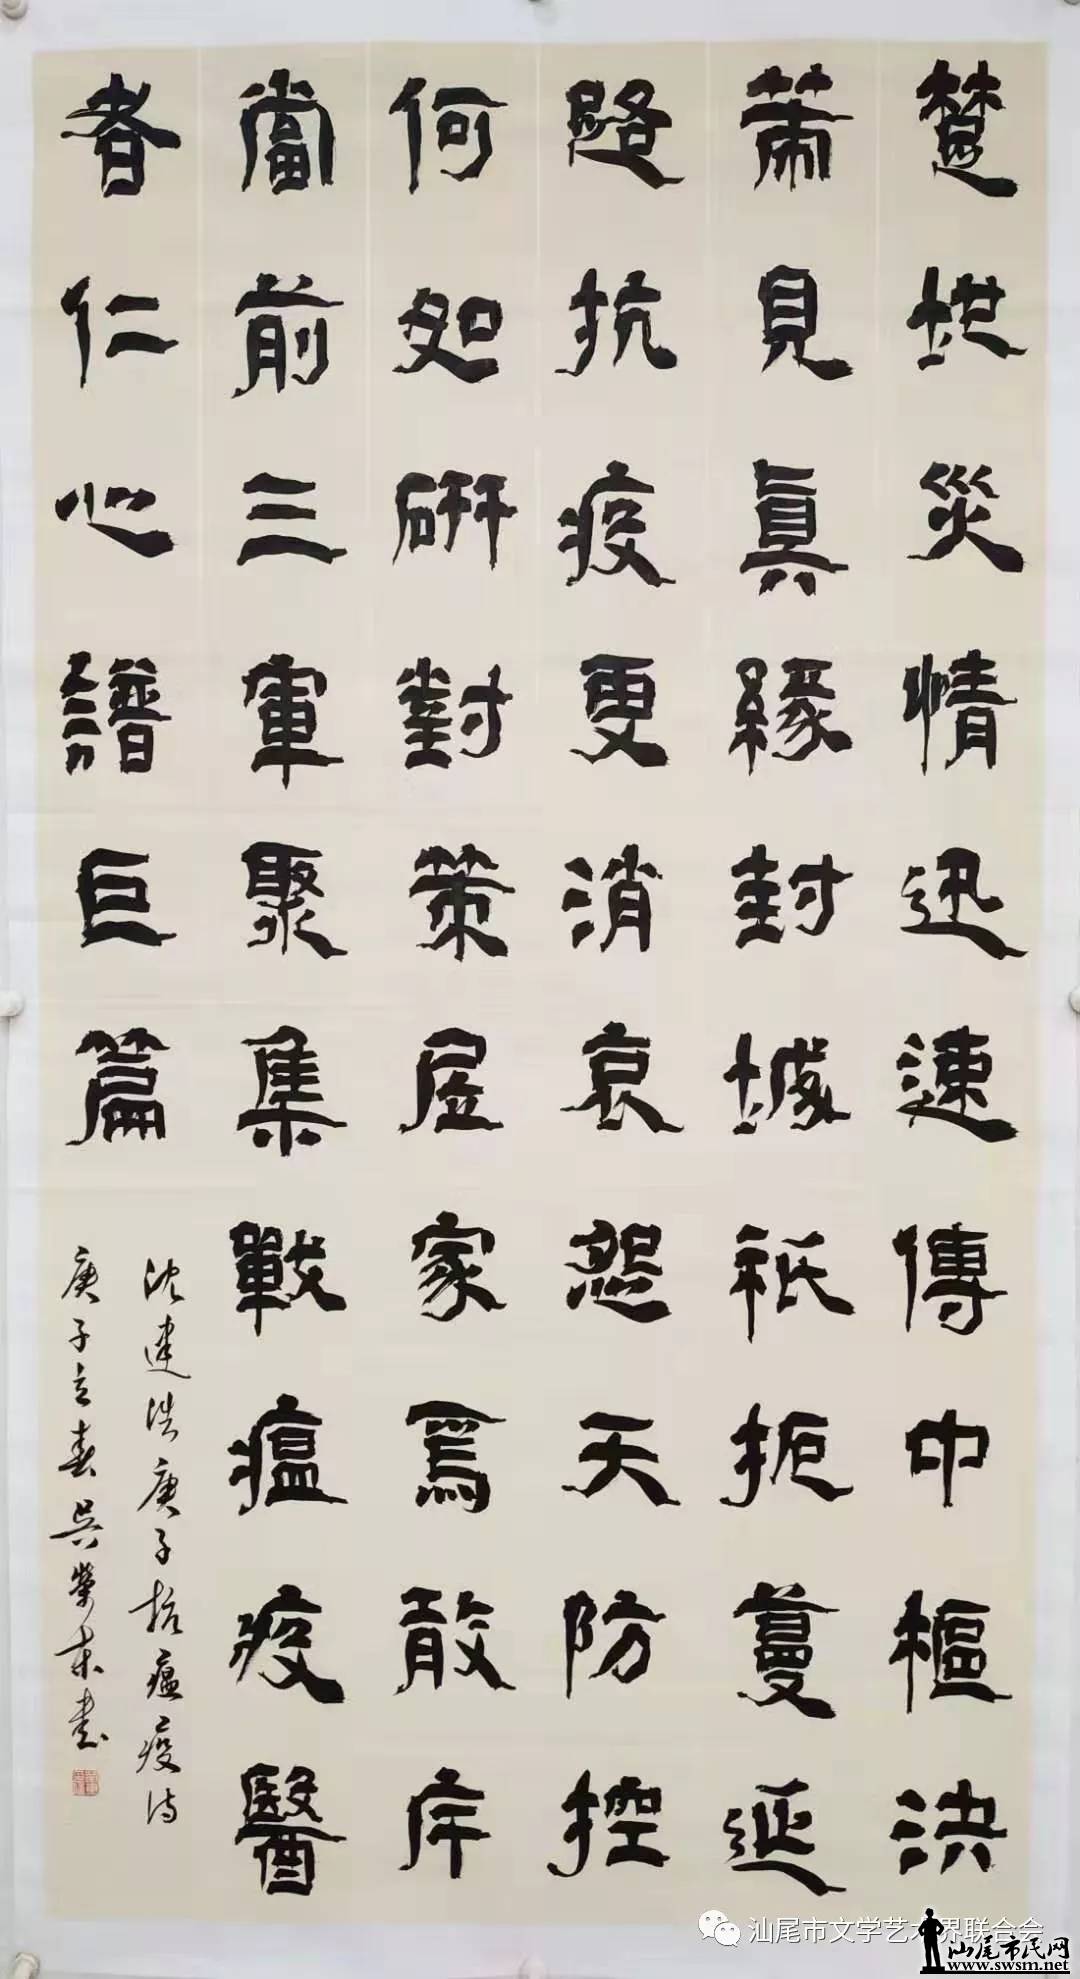 楚地災情迅速傳中樞決
策見真緣封城祇扼蔓延
路抗疫更消哀怨天防控
何如研對策居家焉敢斥
當前三軍聚集戰瘟疫醫
者仁心譜巨篇
沈建浩庚子抗瘟疫诗
庚子立春吳榮東書
汕尾市文学艺术界联合会
汕尾市民网
www.swsm.net